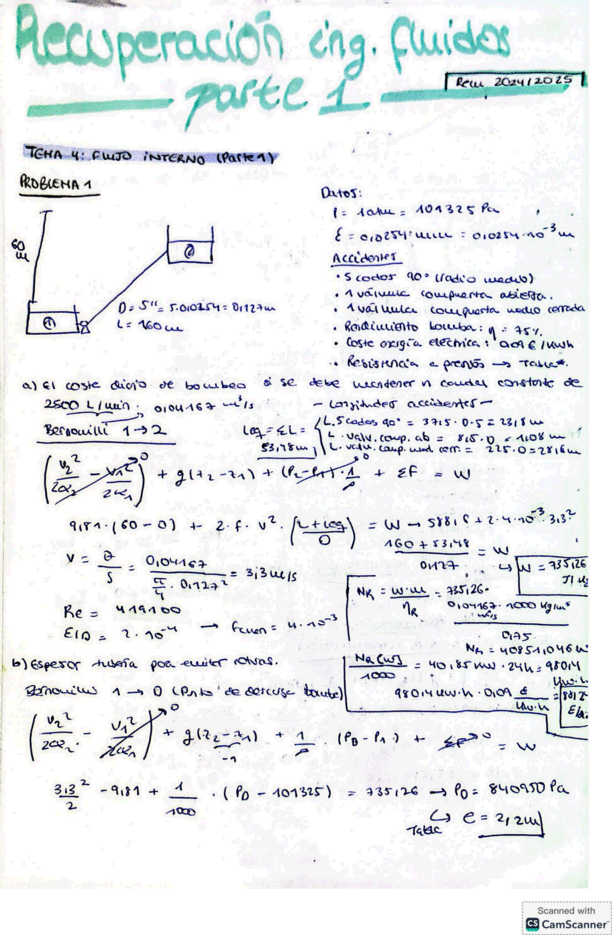 Recuperación ing. fluidos
parte 1
Recu 2024/2025
TEMA 4: FLUJO INTERNO (Parte 1)
PROBLEMA 1
60 m
①
②
D = 5" = 5·0,0254 = 0,127m
L = 160m
Datos:
P = 1 atm = 101325 Pa
ε = 0,0254 mm = 0,0254·10⁻³ m
Accidentes
• 5 codos 90° (radio medio)
• 1 válvula compuerta abierta.
• 1 válvula compuerta medio cerrada
• Rendimiento bomba: η = 75%
• Coste energía eléctrica: 0,09 €/kWh
• Resistencia a presión → Tabla*.
a) El coste diario de bombeo si se debe mantener n caudal constante de
2500 L/min: 0,04167 m³/s
- Longitudes accidentes -
Bernouilli 1→2
Leq = ΣL = 53,48m
L. 5 codos 90° = 37,5·0·5 = 23,8m
L. valv. comp. ab = 8,5·D = 1,08m
L. valv. comp. med cerr. = 225·D = 28,6m
(V₂²/2α₂ - V₁²/2α₁)⁰ + g(z₂-z₁) + (P₂-P₁)·1/ρ ⁰ + ΣF = W
9,81·(60-0) + 2·f·V²·(L+Leq/D) = W → 588,6 + 2·4·10⁻³·3,3²
160+53,48/0,127 = W
↳ W = 735,26 J/kg
V = Q/S = 0,04167/(π/4·0,127²) = 3,3m/s
Re = 419100
ε/D = 2·10⁻⁴ → fanen = 4·10⁻³
NR = W·m/ηR = 735,26·
0,04167·1000 kg/m³
0,75
NR = 40851,046W
NR(W)/1000 = 40,85kW·24h = 980,4 kW·h
980,4kW·h·0,09 €/kW·h = 88,2 €/día
b) Espesor tubería para evitar roturas.
Bernouilli 1→D (Punto de descarga bomba)
(V₂²/2α₂ - V₁²/2α₁)⁰ + g(z₂-z₁) + 1/ρ·(PD-P₁) + ΣF⁰ = W
-1
3,3²/2 - 9,81 + 1/1000·(PD-101325) = 735,26 → PD = 840950 Pa
Tabla ↳ e = 2,2m
Scanned with
CS CamScanner